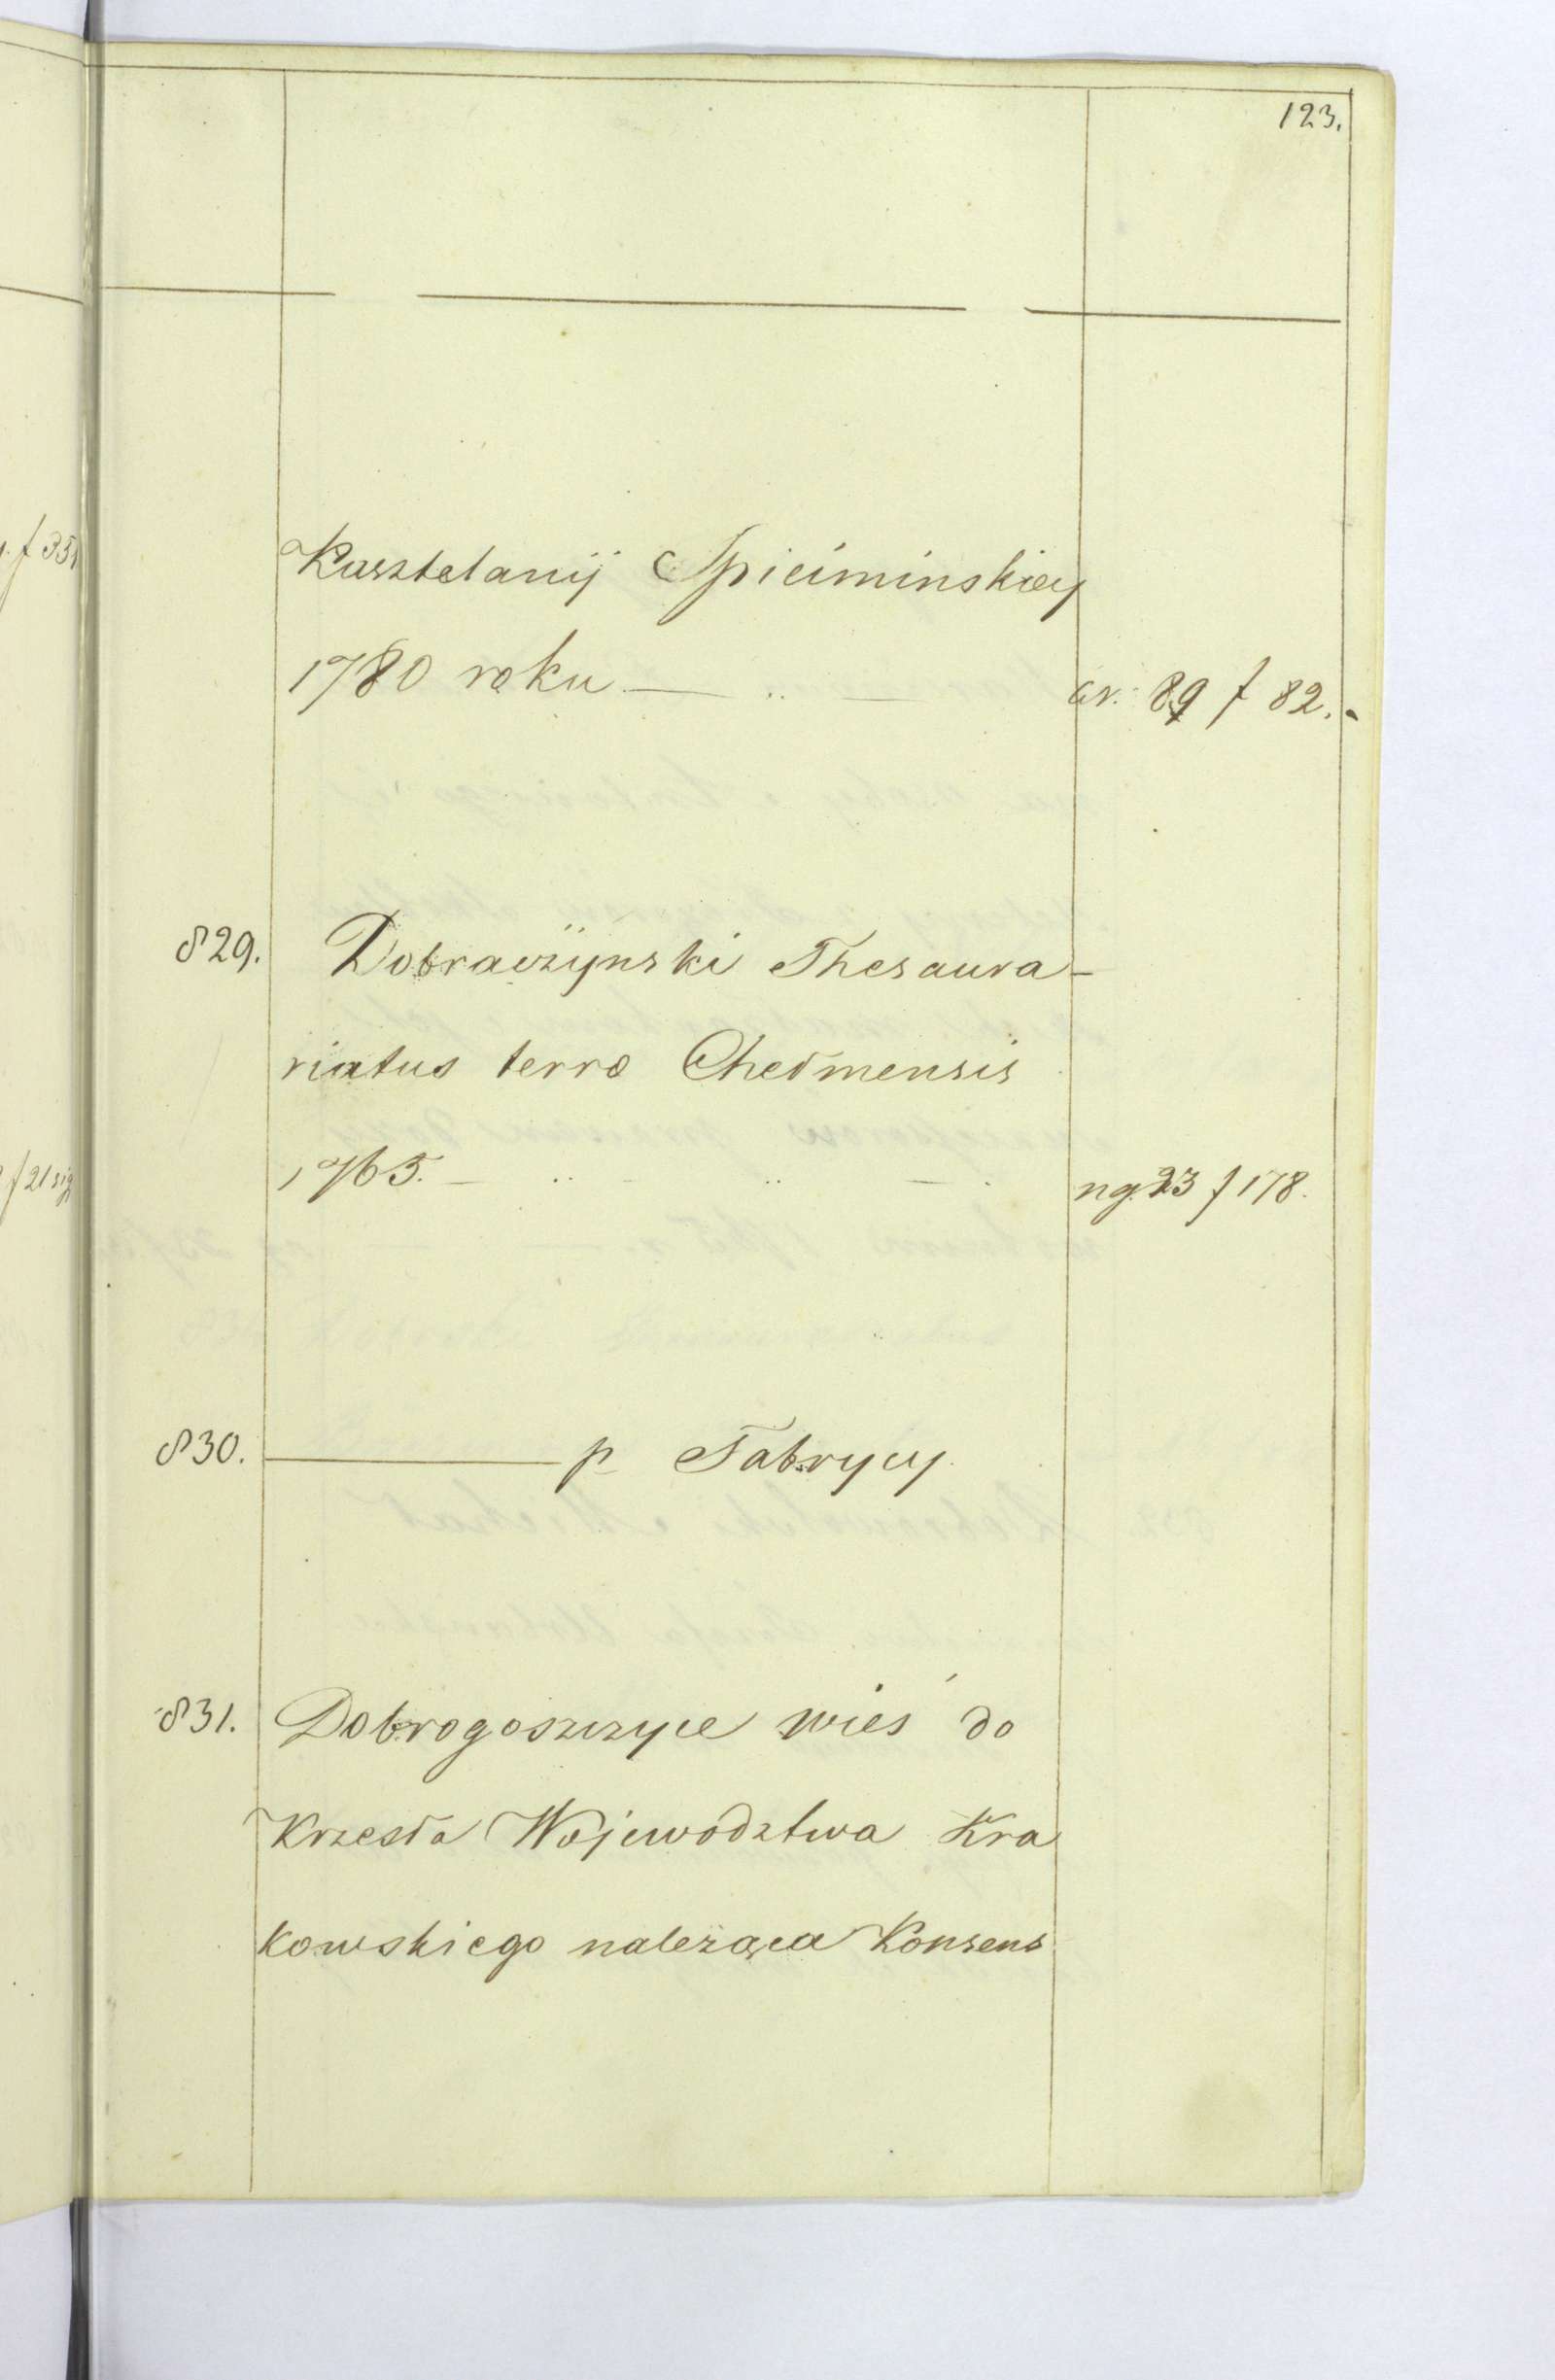 123.
Kasztelanij Spiciminskiey
1780 roku — .. — ar. 89 f 82.
829. Dobraczÿnski Thesaura-
riatus terra Chełmensis
1765. — .. — .. — . ng. 23 f 178.
830. ——— p Fabrycy
831. Dobrogoszczyce wieś do
Krzesła Województwa Kra
kowskiego należąca Konsens
f 351
f 21 sig